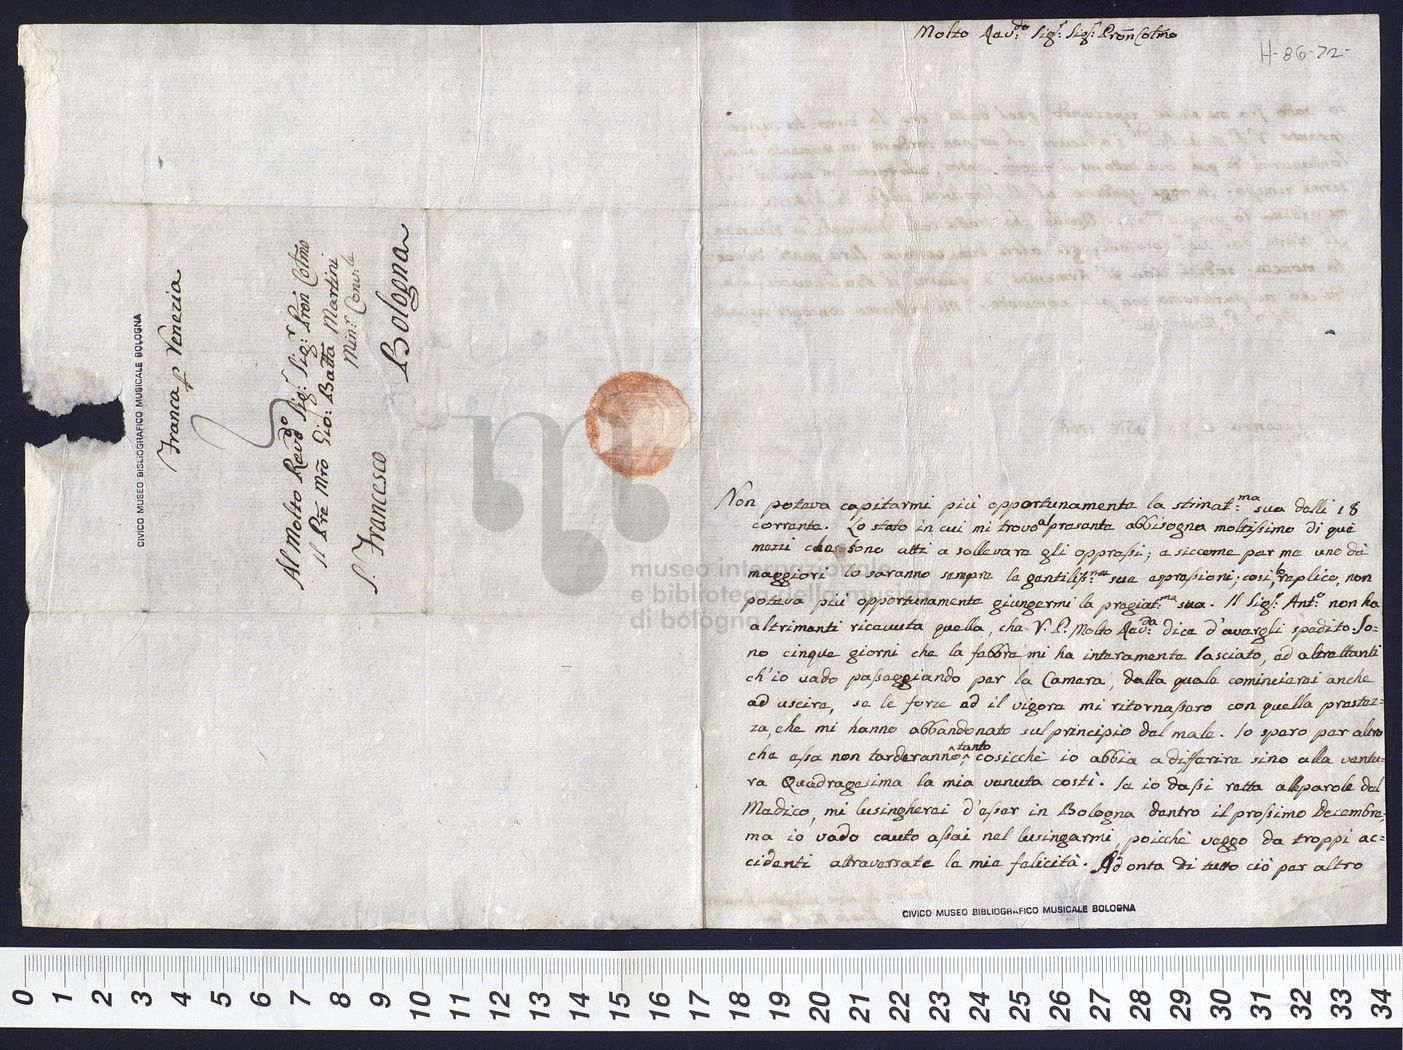 Molto Rev:do Sig:r Sig:r Pron Colmo
H-86-72-
Non poteva capitarmi più opportunamente la stimat:ma sua delli 18
corrente. Lo stato in cui mi trovo al presente abbisogna moltissimo di que
mezzi che sono atti a sollevare gli oppressi; e siccome per me uno dei
maggiori lo saranno sempre le gentiliss:me sue espressioni; così, lo replico, non
poteva più opportunamente giungermi la pregiat:ma sua. Il Sig:r Ant:o non ha
altrimenti ricevuta quella, che V. P. Molto Rev:da dice d'avergli spedito. So=
no cinque giorni che la febbre mi ha interamente lasciato, ed altrettanti
ch'io vado passeggiando per la Camera, dalla quale comincierei anche
ad uscire, se le forze ed il vigore mi ritornassero con quella prestez=
za, che mi hanno abbandonato sul principio del male. Io spero per altro
che esse non tarderanno tanto, cosicchè io abbia a differire sino alla ventu=
ra Quadragesima la mia venuta costì. Se io dassi retta alle parole del
Medico, mi lusingherei d'esser in Bologna dentro il prossimo Decembre,
ma io vado cauto assai nel lusingarmi, poicchè veggo da troppi ac=
cidenti attraversate le mie felicità. Ad onta di tutto ciò per altro
CIVICO MUSEO BIBLIOGRAFICO MUSICALE BOLOGNA
CIVICO MUSEO BIBLIOGRAFICO MUSICALE BOLOGNA
Franca p Venezia
Al Molto Revdo Sig:r Sig:r Pron Colmo
Il Pre Mro Gio: Batta Martini
Min:r Conv:le
S. Francesco
Bologna
museo internazionale
e biblioteca della musica
di bologna
0 1 2 3 4 5 6 7 8 9 10 11 12 13 14 15 16 17 18 19 20 21 22 23 24 25 26 27 28 29 30 31 32 33 34